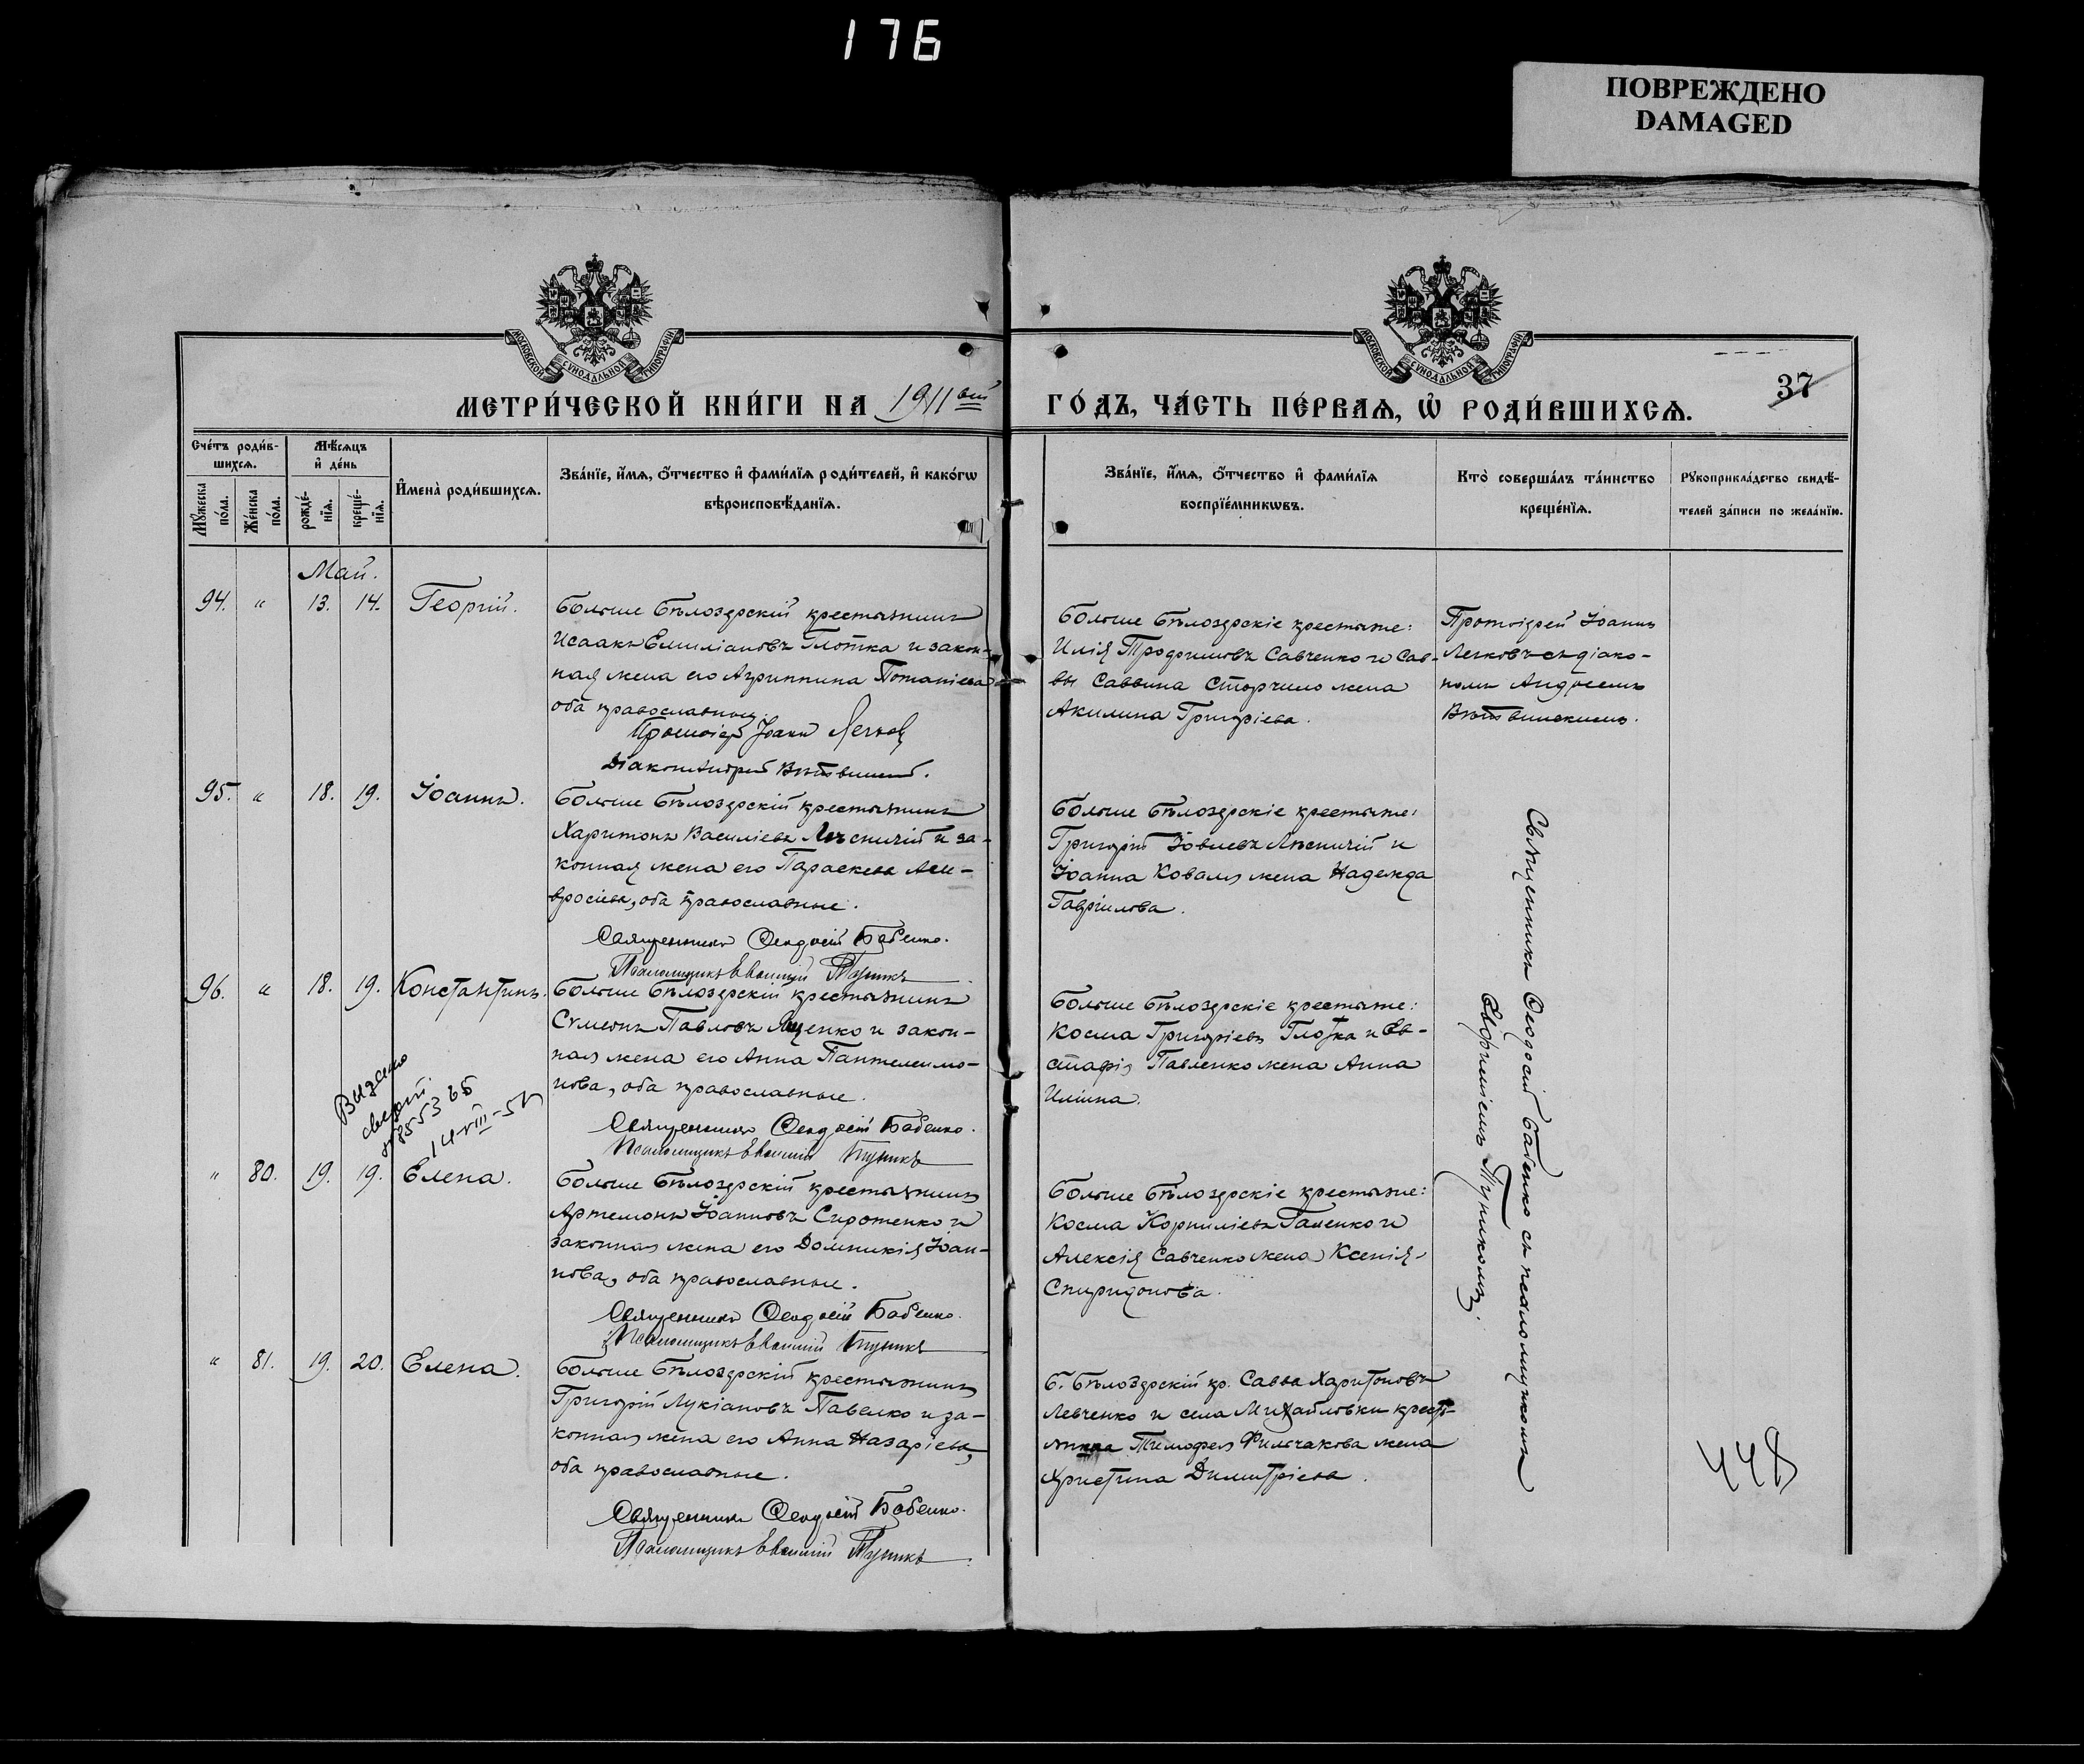 176
ПОВРЕЖДЕНО
DAMAGED
МОСКОВСКОЙ СѴНОДАЛЬНОЙ ТИПОГРАФІИ
МОСКОВСКОЙ СѴНОДАЛЬНОЙ ТИПОГРАФІИ
37
МЕТРИ́ЧЕСКОЙ КНИ́ГИ НА 1911 ый ГО́ДЪ, ЧА́СТЬ ПЕ́РВАѦ, Ѡ҆ РОДИ́ВШИХСѦ.
Сче́тъ роди́в-
шихсѧ.
Мѣ́сѧцъ
и҆ де́нь
Мꙋ́жеска
по́ла.
Же́нска
по́ла.
рожде́-
нїѧ.
креще́-
нїѧ.
И҆мена̀ роди́вшихсѧ.
Зва́нїе, и҆́мѧ, ѻ҆́тчество и҆ фами́лїѧ роди́телей, и҆ како́гѡ
вѣроисповѣ́данїѧ.
Зва́нїе, и҆́мѧ, ѻ҆́тчество и҆ фами́лїѧ
воспрїе́мникѡвъ.
Кто̀ соверша́лъ та́инство
креще́нїѧ.
Рꙋкоприкла́дство свидѣ́-
телей за́писи по жела́нїю.
Май.
94. " 13. 14. Георгій.
Больше Бѣлозерскій крестьянинъ
Исаакъ Емиліановъ Глотка и закон-
ная жена его Агриппина Потапіева
оба православны.
Протоіер Іоанн Легков
Діаконъ Андрей Вѣтвинскій.
Больше Бѣлозерскіе крестьяне:
Илія Трофимовъ Савченко и Сав-
вы Саввина Сторчило жена
Акилина Григоріева.
Протоіерей Іоаннъ
Легковъ съ діако-
номъ Андреемъ
Вѣтвинскимъ.
95. " 18. 19. Іоаннъ.
Больше Бѣлозерскій крестьянинъ
Харитонъ Василіевъ Лѣсничій и за-
конная жена его Параскева Ам-
вросіева, оба православные.
Священникъ Ѳеодосій Бабенко.
Псаломщикъ Евфимій Туникъ
Больше Бѣлозерскіе крестьяне:
Григорій Іовлевъ Лѣсничій и
Іоанна Коваля жена Надежда
Гавріилова.
96. " 18. 19. Константинъ.
Больше Бѣлозерскій крестьянинъ
Сѵмеонъ Павловъ Яценко и закон-
ная жена его Анна Пантелеимо-
нова, оба православные.
Священникъ Ѳеодосій Бабенко.
Псаломщикъ Евфимій Туникъ
Больше Бѣлозерскіе крестьяне:
Косма Григоріевъ Глотка и Ев-
стафія Павленко жена Анна
Иліина.
Выдано
14-VIII-51
" 80. 19. 19. Елена.
Больше Бѣлозерскій крестьянинъ
Артемонъ Іоанновъ Сиротенко и
законная жена его Домникія Іоан-
нова, оба православные.
Священникъ Ѳеодосій Бабенко.
Псаломщикъ Евфимій Туникъ
Больше Бѣлозерскіе крестьяне:
Косма Корниліевъ Галенко и
Алексія Савченко жена Ксенія
Спиридонова.
" 81. 19. 20. Елена.
Больше Бѣлозерскій крестьянинъ
Григорій Лукіановъ Павелко и за-
конная жена его Анна Назаріева,
оба православные.
Священникъ Ѳеодосій Бабенко.
Псаломщикъ Евфимій Туникъ
Б. Бѣлозерскій кр. Савва Харитоновъ
Левченко и села Михайловки кресть-
янина Тимофея Фильчакова жена
Христина Димитріева.
Священникъ Ѳеодосій Бабенко съ псаломщикомъ
Евфиміемъ Туникомъ.
448